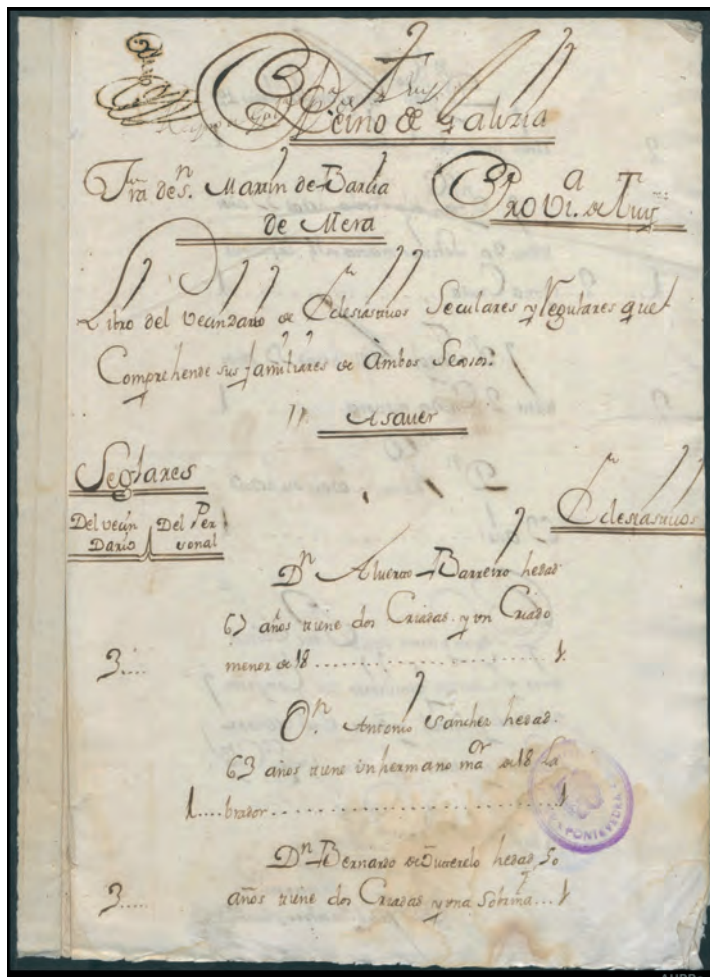 Reino de Galizia
Fra. de Sn. Martin de Barcia
de Mera
Provia. de Tuy
Libro del vecindario de Eclesiasticos Seculares y Regulares que
Comprehende sus familiares de Ambos Sexsos:
Asaver
Seglares
Eclesiasticos
Del vecin
Dario
Del Per
sonal
Dn. Alverto Barreiro hedad
67 años tiene dos Criadas y un Criado
3..... menor de 18 .................. 1
Dn. Antonio Sanchez hedad
63 años tiene un hermano mor. de 18 la
1.... brador ........................ 1
Dn. Bernardo de hedad 50
3..... años tiene dos Criadas y una Sobrina ... 1
PONTEVEDRA